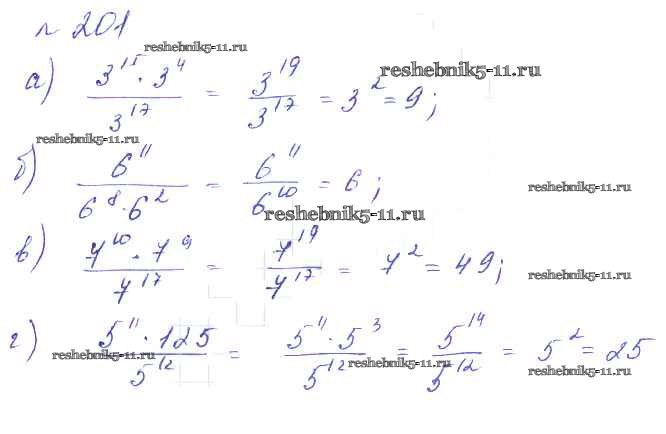 № 201
reshebnik5-11.ru
а) 3^15 · 3^4 / 3^17 = 3^19 / 3^17 = 3^2 = 9;
reshebnik5-11.ru
reshebnik5-11.ru
б) 6^11 / 6^8 · 6^2 = 6^11 / 6^10 = 6;
reshebnik5-11.ru
reshebnik5-11.ru
в) 7^10 · 7^9 / 7^17 = 7^19 / 7^17 = 7^2 = 49;
reshebnik5-11.ru
г) 5^11 · 125 / 5^12 = 5^11 · 5^3 / 5^12 = 5^14 / 5^12 = 5^2 = 25
reshebnik5-11.ru
reshebnik5-11.ru
reshebnik5-11.ru